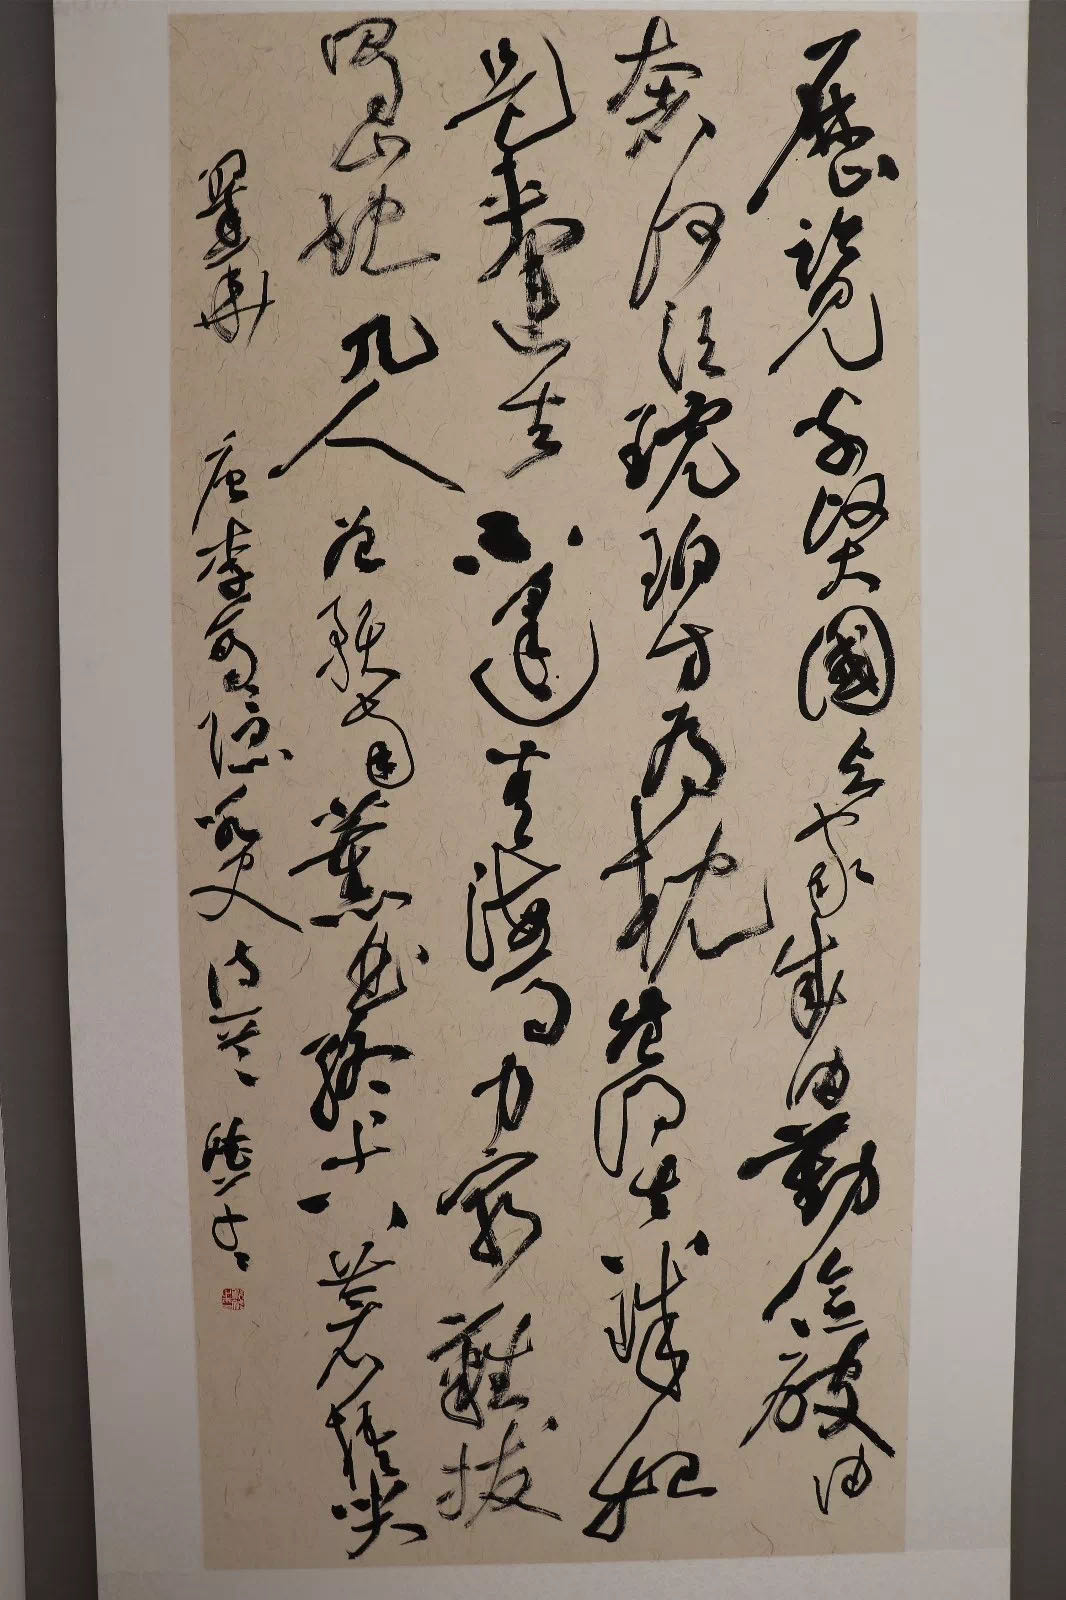 歷覽前賢國与家成由勤儉破由
奢何須琥珀方为枕豈得真珠始
是車運去不逢青海馬力窮難拔
蜀山蛇几人曾預南薰曲終古蒼梧哭
翠華 唐李商隱咏史詩一首